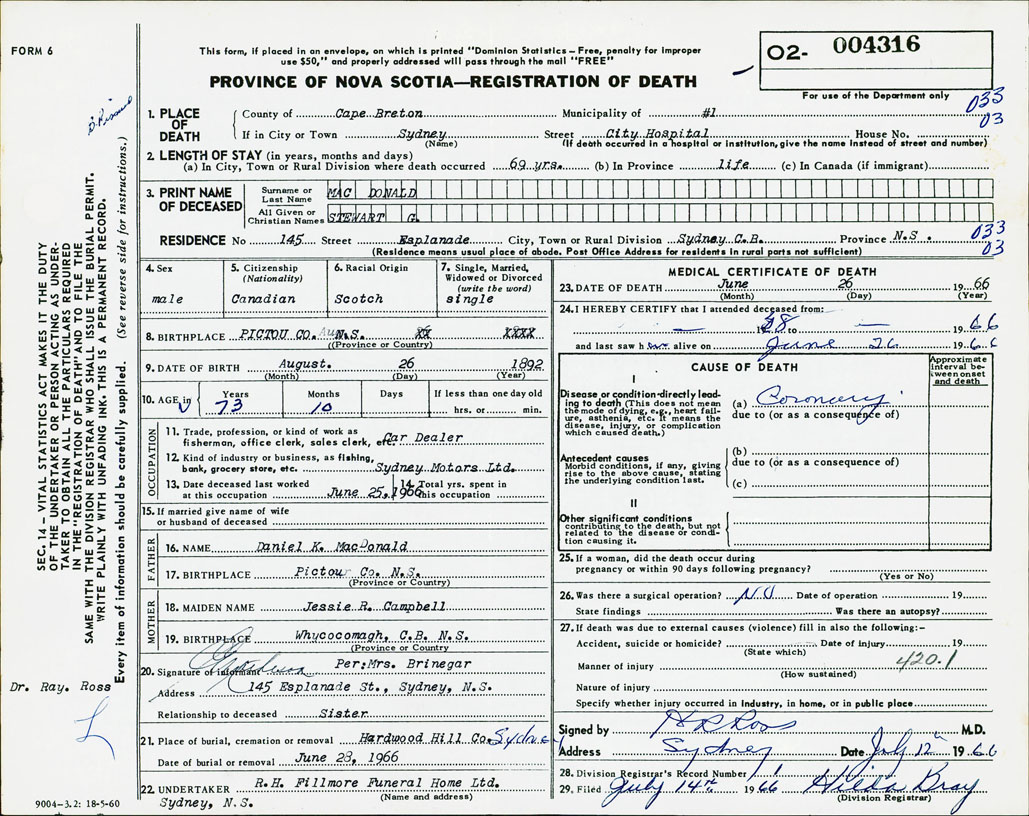 FORM 6
This form, if placed in an envelope, on which is printed "Dominion Statistics – Free, penalty for improper
use $50," and properly addressed will pass through the mail "FREE"
PROVINCE OF NOVA SCOTIA—REGISTRATION OF DEATH
O2- 004316
For use of the Department only
033
03
1. PLACE OF DEATH
County of Cape Breton Municipality of #1
If in City or Town Sydney Street City Hospital House No.
(Name) (If death occurred in a hospital or institution, give the name instead of street and number)
2. LENGTH OF STAY (in years, months and days)
(a) In City, Town or Rural Division where death occurred 69 yrs. (b) In Province life (c) In Canada (if immigrant)
3. PRINT NAME OF DECEASED
Surname or Last Name MAC DONALD
All Given or Christian Names STEWART G.
033
03
RESIDENCE No 145 Street Esplanade City, Town or Rural Division Sydney C.B. Province N.S.
(Residence means usual place of abode. Post Office Address for residents in rural parts not sufficient)
4. Sex
male
5. Citizenship
(Nationality)
Canadian
6. Racial Origin
Scotch
7. Single, Married,
Widowed or Divorced
(write the word)
single
8. BIRTHPLACE PICTOU CO. N.S. XX XXXX
(Province or Country)
9. DATE OF BIRTH August. 26 1892
(Month) (Day) (Year)
10. AGE in Years Months Days If less than one day old
73 10 hrs. or min.
OCCUPATION
11. Trade, profession, or kind of work as
fisherman, office clerk, sales clerk, etc. Car Dealer
12. Kind of industry or business, as fishing,
bank, grocery store, etc. Sydney Motors Ltd.
13. Date deceased last worked
at this occupation June 25, 1966
14. Total yrs. spent in
this occupation
15. If married give name of wife
or husband of deceased
FATHER
16. NAME Daniel K. MacDonald
17. BIRTHPLACE Pictou Co. N.S.
(Province or Country)
MOTHER
18. MAIDEN NAME Jessie R. Campbell
19. BIRTHPLACE Whycocomagh, C.B. N.S.
(Province or Country
20. Signature of informant Per: Mrs. Brinegar
Address 145 Esplanade St., Sydney, N.S.
Relationship to deceased Sister
21. Place of burial, cremation or removal Hardwood Hill Co. Sydney
Date of burial or removal June 28, 1966
22. UNDERTAKER R.H. Fillmore Funeral Home Ltd.
(Name and address)
Sydney, N.S.
MEDICAL CERTIFICATE OF DEATH
23. DATE OF DEATH June 26 1966
(Month) (Day) (Year)
24. I HEREBY CERTIFY that I attended deceased from:
— 1928 to — 1966
and last saw him alive on June 26 1966
CAUSE OF DEATH
Approximate interval between onset and death
I
Disease or condition directly leading to death (This does not mean
the mode of dying, e.g., heart failure, asthenia, etc. It means the
disease, injury, or complication
which caused death.)
(a) Coronary
due to (or as a consequence of)
Antecedent causes
Morbid conditions, if any, giving
rise to the above cause, stating
the underlying condition last.
(b)
due to (or as a consequence of)
(c)
II
Other significant conditions
contributing to the death, but not
related to the disease or condition causing it.
25. If a woman, did the death occur during
pregnancy or within 90 days following pregnancy?
(Yes or No)
26. Was there a surgical operation? NO Date of operation 19
State findings Was there an autopsy?
27. If death was due to external causes (violence) fill in also the following:–
Accident, suicide or homicide? Date of injury 19
(State which)
420.1
Manner of injury
(How sustained)
Nature of injury
Specify whether injury occurred in industry, in home, or in public place
Signed by H R Ross M.D.
Address Sydney Date July 12th 1966
28. Division Registrar's Record Number 1
29. Filed July 14th 1966 Hilda Bray
(Division Registrar)
SEC. 14 – VITAL STATISTICS ACT MAKES IT THE DUTY
OF THE UNDERTAKER OR PERSON ACTING AS UNDERTAKER TO OBTAIN ALL THE PARTICULARS REQUIRED
IN THE "REGISTRATION OF DEATH" AND TO FILE THE
SAME WITH THE DIVISION REGISTRAR WHO SHALL ISSUE THE BURIAL PERMIT.
WRITE PLAINLY WITH UNFADING INK. THIS IS A PERMANENT RECORD.
Every item of information should be carefully supplied. (See reverse side for instructions.)
Dr. Ray. Ross
L
9004–3.2: 18-5-60